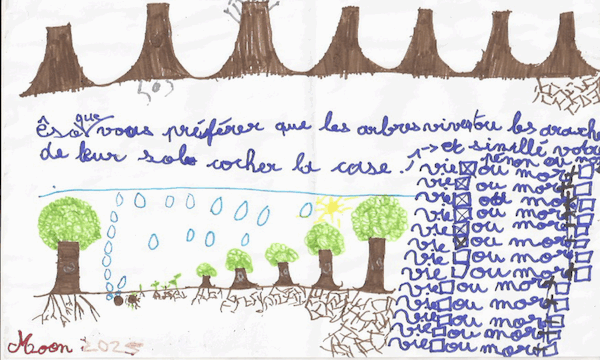 êsque vous préférer que les arbres vives ou les arrache
de leur solo cocher la case. → et simillé votre
pénon ou
vie ou mort
vie ou mort
vie ou mort
vie ou mort
vie ou mort
vie ou mort
vie ou mort
vie ou mort
vie ou mort
vie ou mort
vie ou mort
vie ou mort
vie ou mort
Moon 2025